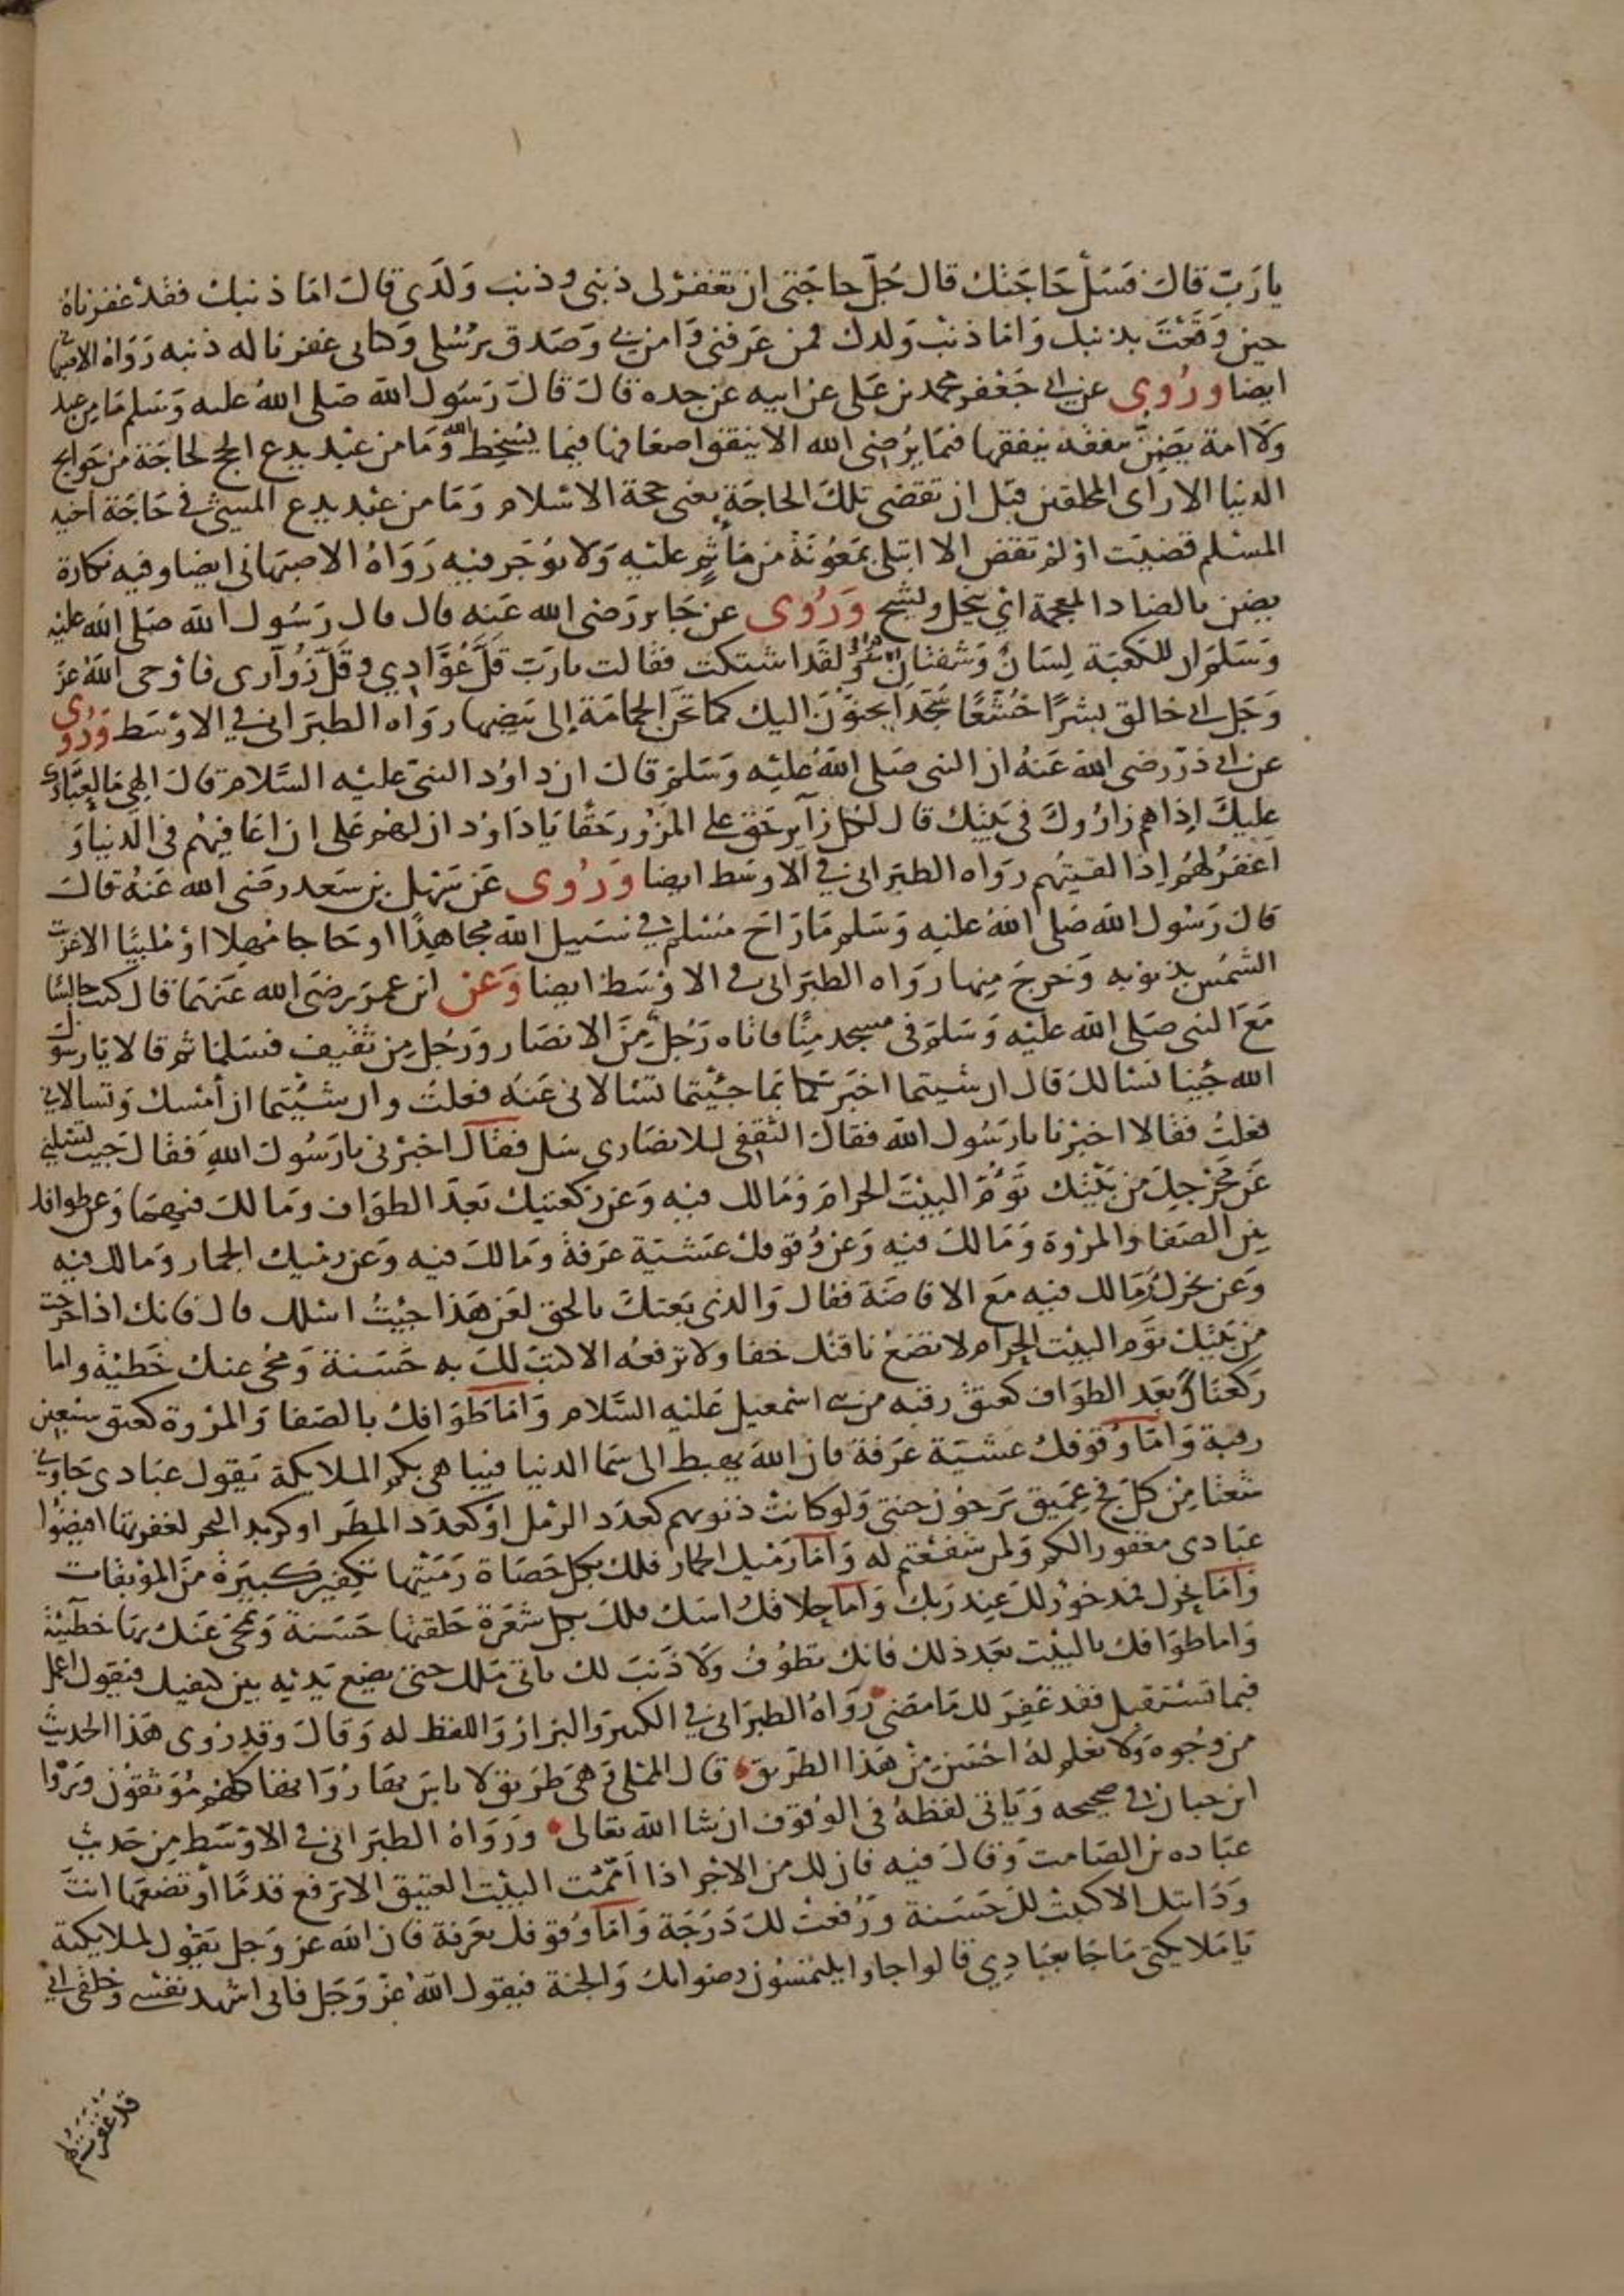 يارَبّ قال فَسَلْ حَاجَتك قال جُلّ حاجَتى ان تغفر لى ذنبى وذنب وَلَدى قال امّا ذنبك فقد غفرناهُ
حين وَقَعْتَ بذنبك وَامّا ذنب وَلدك فمن عَرفنى وَامن بى وَصَدق برُسُلى وَكتابى غفرنا له ذنبه رَوَاهُ الاصبهانى
ايضا ورُوى عن ابى جَعْفر محمد بن عَلى عن ابيه عن جده قال قال رَسُول الله صَلى اللهُ عليه وَسَلم مَا من عبد
وَلا امة يضِنّ بنفقة ينفقها فيما يُرضى الله الا ينفق اضعافها فيما يُسخِط الله وَمَا من عبْد يدع الحج لحاجَة من حَوايج
الدنيا الا راى المحلقين قبَل ان تقضى تلكَ الحاجَة يعنى حجة الاسْلام وَمَا من عبْد يدع المشى فى حَاجَة اخيه
المسْلم قضيَت اوْ لم تقض الا ابتلى بمَعُونَة من مَأثم علَيْه وَلا يؤجَر فيه رَوَاهُ الاصبَهانى ايضا وفيه نكارة
يضن بالضاد المعجمة اىْ يبخل ويشح وَرُوى عن جَابر رَضى الله عَنه قال قال رَسُول الله صَلى اللهُ عليْه
وَسَلمَ ان للكعبَة لِسَانٌ وَشفتَان وَلقد اشتكَت فقالت يا رَبّ قَلَّ عُوَّادِي وقَلَّ زُوّارى فاَوْحى اللهُ عز
وَجَل انى خالق بشرًا خُشَّعًا سُجّدًا يَحِنّونَ اليك كما تحنّ الحَمامَة إلى بَيضِها رَوَاه الطبَرانى في الاوْسَط وَرُوى
عن ابى ذرّ رَضى اللهُ عَنهُ ان النبى صَلى اللهُ علَيْه وَسَلمَ قال ان دَاوُد النبىّ علَيْه السَّلام قال الهى مَا لعِبَادِك
عليكَ إذا هم زارُوكَ فى بَيْتِك قال لكل زَآيرٍ حَقّ على المزُور حَقًا يَا دَاوُد ان لهُم عَلى ان اعَافِيهُم فى الدنيا وَ
اَغفرُ لهُمْ اِذَا لقيتُهم رَوَاه الطبَرانى في الاوسَط ايضا وَرُوى عَن سَهْل بن سَعد رَضى الله عَنهُ قال
قال رَسُول الله صَلى اللهُ عليْه وَسَلم مَا رَاحَ مسْلم في سَبيل الله مجاهِدًا او حَاجا مُهلا اوْ مُلَبيًا الا غربَت
الشمْس بذنوبه وَخرجَ مِنها رَوَاه الطبَرانى فى الاوْسَط ايضا وَعَن ابن عمَر رَضَى الله عَنهمَا قال كنت جالسًا
مَعَ النبى صَلى الله علَيْه وَسَلمَ فى مسجد مِنًا فاتاه رَجُل مِنَ الانصَار وَرَجُل مِن ثقيف فسَلما ثم قالا يَا رسُول
الله جيْنا نسْالك قال ان شيتما اخبَرتكما بما جيْتما تسْالانى عَنهُ فعلتُ وان شيْتما ان اُمْسك وَتسالانى
فعلتُ فقالا اخبرْنا يارَسُول الله فقال الثقفى للانصَارى سَل فقال اخبرْنى يا رَسُول اللهِ فقال جيت تسْلنى
عَن مَخْرجِكَ من بَيْتك تؤمّ البيْت الحرَام وَمَا لك فيه وَعَن ركعتيك بَعدَ الطوَاف وَمَا لكَ فيهمَا وَعن طوافك
بين الصَفا والمرْوَة وَمَا لك فيه وَعَن وُقوفك عَشيَة عَرفةَ وَمَا لكَ فيه وَعَن رميك الجمار وَما لك فيه
وَعَن نحرك وَمَا لك فيه مَع الافاضَة فقال وَالذى بَعثكَ بالحق لعَن هَذا جيْتُ اسْلك قال فانك اذا خرجْت
من بَيْتك تؤم البيْت الحرام لا تضَعُ ناقتك خفا ولا ترفعُه الا كتبَ لكَ به حَسَنة وَمُحى عنك خَطيْة واما
رَكعتاك بعَد الطوَاف كعتق رقبَه من بنى اسمعيل عَليْه السَّلام وَامّا طَوَافك بالصَفا وَالمرْوة كعتق سبْعين
رقبة وَامّا وُقوفك عَشيَة عَرفة فان اللهَ يهبط الى سَما الدنيا فيباهى بكم الملايكة يَقول عبَادى جَاونى
شعْثا مِن كل فج عمَيق يَرجُون جنتى وَلو كانتْ ذنوبهم كعدَد الرمْل اوْ كعدَد المطَر او كزبد البحر لغفرتها افيضُوا
عبَادى مغفورا لكم وَلمن شفعْتم له وَامّا رَميك الجمار فلك بكل حَصَاة رَمَيْتها تكفير كبيَرة منَ الموبقات
وَامَا نحرك فمدخوْر لكَ عِند رَبك وَامّا حِلاقك راسَك فلكَ بكل شعَرَة حَلقتها حَسَنة وَتمحَى عَنك بهَا خطَيْئة
وَاما طوَافك بالبيْت بعَد ذلك فانك تطوُف وَلا ذَنبَ لك ياتى مَلك حتى يضع يَديه بين كتفيك فيقول اعمل
فيما تسْتقبل فقد غُفِر لك مَا مضى رَوَاهُ الطبرَانى في الكبير وَالبزار وَاللفظ له وَقال وقد رُوى هَذا الحديث
من وُجُوه وَلا نعلم لهُ احْسَن من هَذا الطَريق قال المملى وَهَى طرَيق لا باسَ بهَا رُوَاتها كلهم مُوَثقوُن وَرَوَا
ابن حبان فى صحيحه وَيَاتى لفظهُ فى الوُقوف ان شا الله تعَالى وَرَوَاهُ الطبَرانى فى الاوْسَط مِن حَديث
عبَاده بن الصَامت وَقال فيه فان لك من الاجْر اذا اَمَمْت البيْت العتيق الا ترفع قدمًا اوْ تضعَها انتَ
وَدَابتك الا كتبَتْ لكَ حَسَنة وَرُفعَتْ لكَ دَرَجَة وَامّا وُقوفك بعَرفة فان الله عز وَجل يَقول لملايكته
يَا مَلايكتى مَا جَا بعبَادِى قالوا جاوا يلتمسُون رضوانك وَالجنة فيقول اللهُ عزّ وَجَل فانى اشهد نفسْى وَخلقى انى
قد غفرت لهم